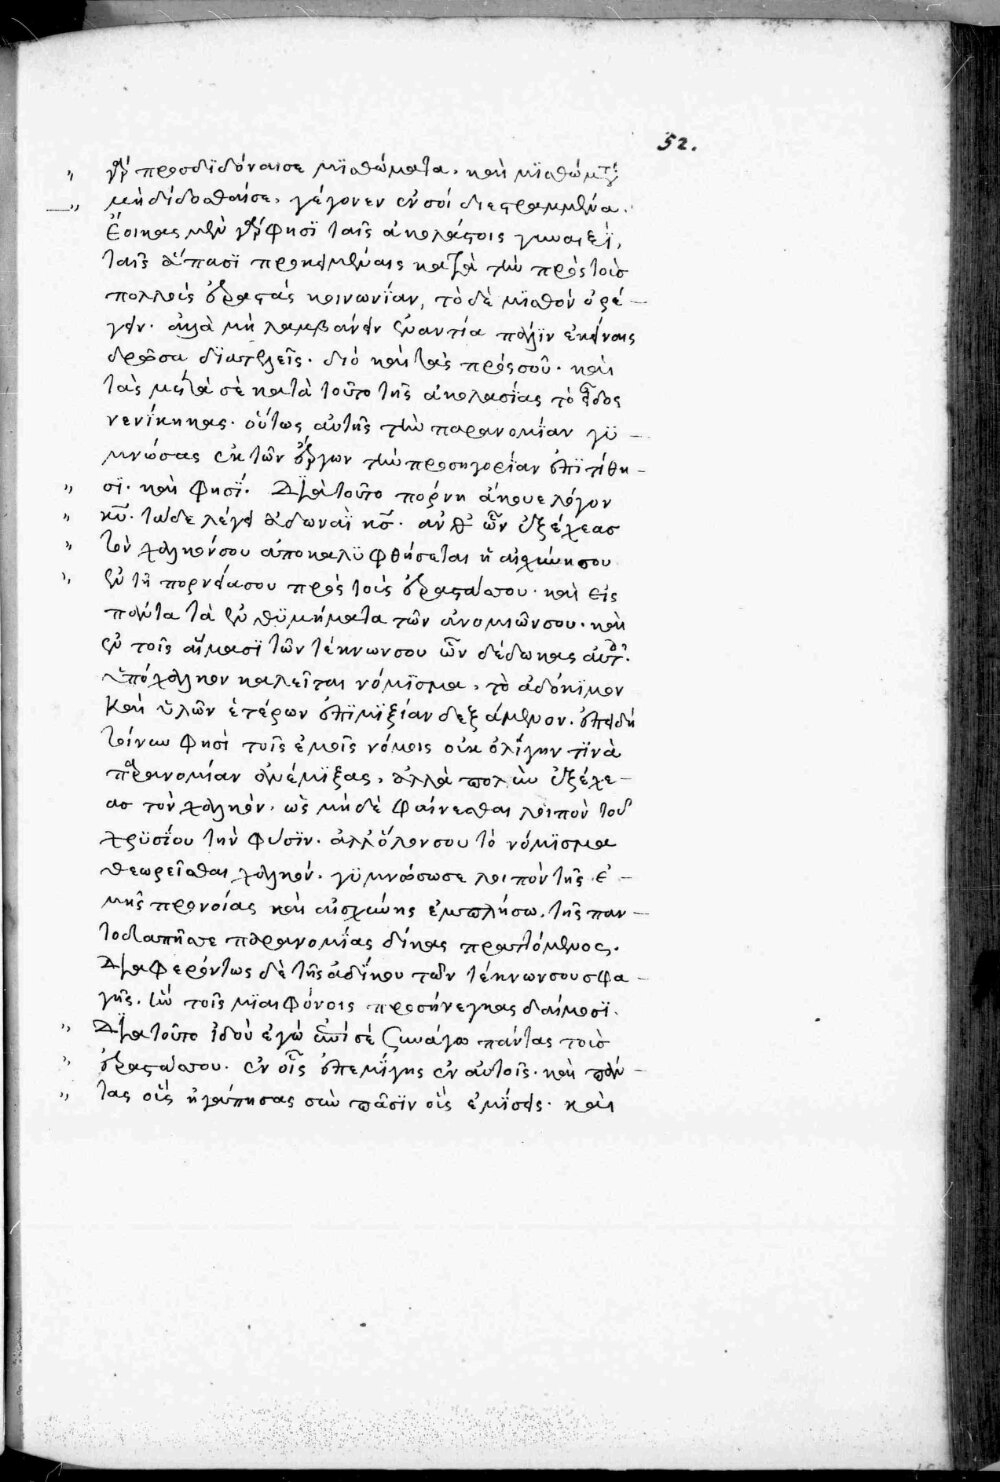 52.
γὰρ προσδϊδόναισε μϊσθώματα. καὶ μϊσθώμτ
μὴ δίδοσθαίσε. γέγονεν ἐν σοί διεστραμμένα.
Ἔοικας μὲν γάρ φησϊ ταῖς ἀκολάστοις γυναιξϊ,
ταῖς ἅπασϊ προκειμέναις κατὰ τὴν πρὸς τοὺσ
πολλοὺς ἐραστὰς κοινωνίαν, τὸ δὲ μϊσθὸν ὀρέ –
γειν. ἀλλὰ μὴ λαμβάνειν ἐναντία πάλϊν ἐκείναις
δρῶσα δϊατελεῖς. διό καὶ τὰς πρόσσοῦ. καὶ
τὰς μετά σὲ κατὰ τοῦτο τῆς ἀκολασίας τὸ εἶδος
νενίκηκας. οὕτως αὐτῆς τὴν παρανομίαν γϋ –
μνώσας ἐκ τῶν ἔργων τὴν προσηγορίαν ἐπϊτίθη –
σϊ. καὶ φησϊ. Δϊὰ τοῦτο πόρνη ἄκουε λόγον
κυ. τάδε λέγει ἀδωναῒ κς. ἀνθ' ὧν ἐξέχεασ
τὸν χαλκόνσου ἀποκαλϋφθήσεται ἡ αἰσχύνησου
ἐν τῇ πορνείασου πρὸς τοὺς ἐραστάσσου. καὶ εἰς
πάντα τὰ ἐνθϋμήματα τῶν ἀνομιῶνσου. καὶ
ἐν τοῖς αἵμασϊ τῶν τέκνωνσου ὧν δέδωκας αὐτ.
ὑπόχαλκον καλεῖται νόμϊσμα, τὸ ἀδόκιμον
καὶ ὑλῶν ἑτέρων ἐπϊμϊξίαν δεξάμενον. ἐπειδὴ
τοίνυν φησὶ τοῖς ἐμοῖς νόμοις οὐκ ὀλίγην τϊνὰ
παρανομίαν ἀνέμϊξας, ἀλλὰ πολὺν ἐξέχε –
ασ τὸν χαλκὸν. ὡς μὴ δὲ φαίνεσθαι λοιπὸν τοῦ
χρϋσίου τὴν φύσϊν. ἀλλ' ὅλονσου τὸ νόμϊσμα
θεωρεῖσθαι χαλκόν. γϋμνώσωσε λοιπὸν τῆς ἐ –
μῆς προνοίας καὶ αἰσχύνης ἐμπλήσω. τῆς παν –
τοδαπῆςσε παρανομίας δίκας πραττόμενος.
Δϊαφερόντως δὲ τῆς ἀδίκου τῶν τέκνωνσου σφα –
γῆς. ἣν τοῖς μϊαιφόνοις προσήνεγκας δαίμοσϊ.
Δϊὰ τοῦτο ἰδοὺ ἐγὼ ἐπί σέ συνάγω πάντας τοὺσ
ἐραστάσσου. ἐν οἷς ἐπεμίγης ἐν αὐτοῖς. καὶ πάν –
τας οὓς ἠγάπησας σὺν πᾶσϊν οἷς ἐμίσεις. καὶ